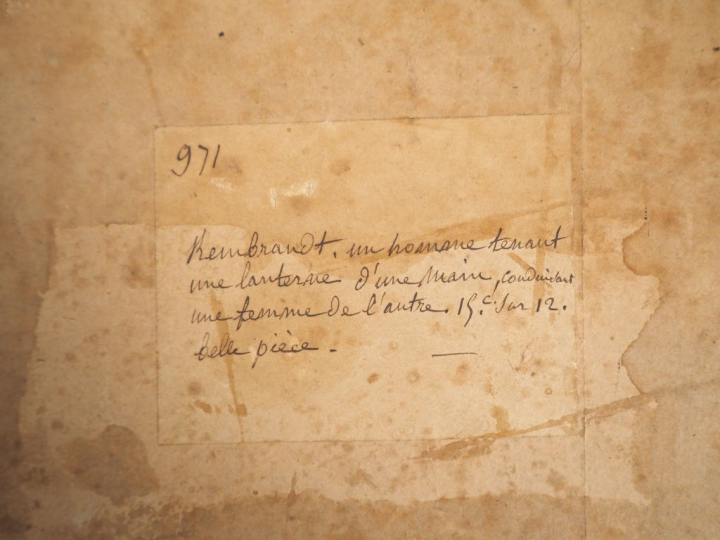 971
Rembrandt. un homme tenant
une lanterne d'une main, conduisant
une femme de l'autre. 15.c. sur 12.
belle pièce. —